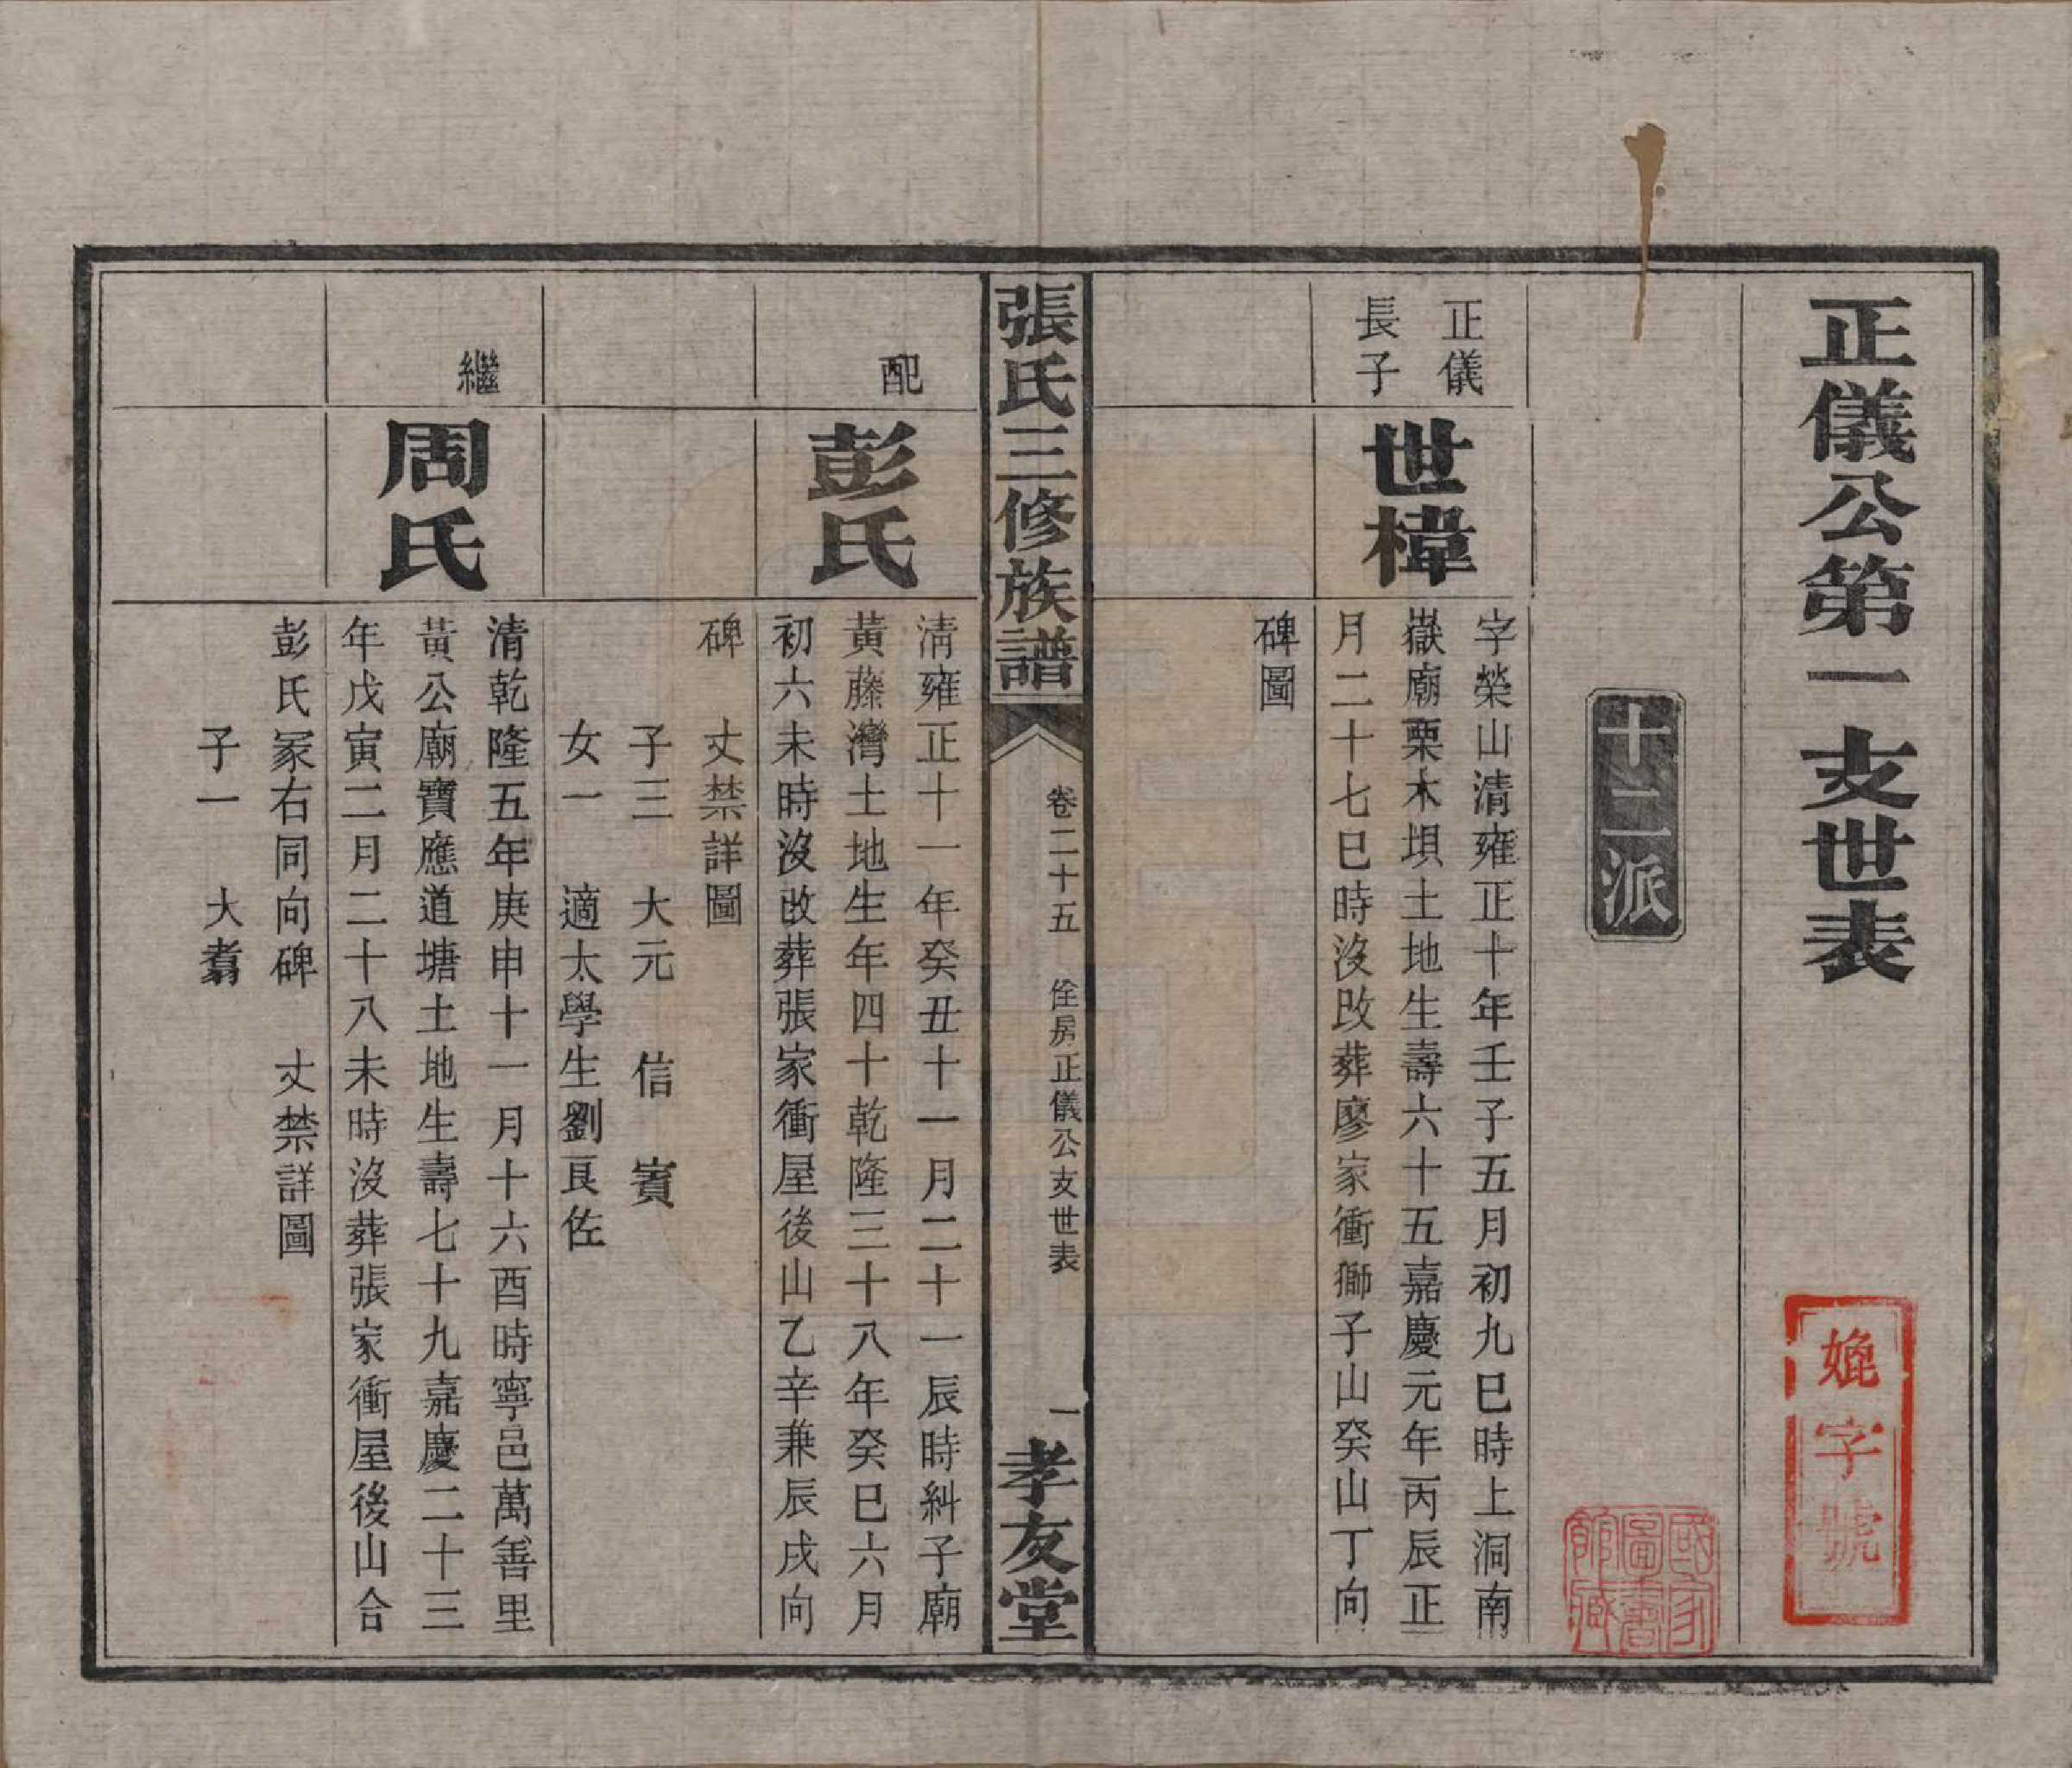 正儀公第一支世表
十二派
正儀
長子
世樟
字榮山清雍正十年壬子五月初九巳時上洞南
嶽廟栗木垻土地生壽六十五嘉慶元年丙辰正
月二十七巳時沒改葬廖家衝獅子山癸山丁向
碑圖
張氏三修族譜
卷二十五 佺房正儀公支世表
一
孝友堂
配
彭氏
淸雍正十一年癸丑十一月二十一辰時糾子廟
黃藤灣土地生年四十乾隆三十八年癸巳六月
初六未時沒改葬張家衝屋後山乙辛兼辰戌向
碑 丈禁詳圖
子三 大元 信 賓
女一 適太學生劉良佐
繼
周氏
清乾隆五年庚申十一月十六酉時寧邑萬善里
黃公廟寶應道塘土地生壽七十九嘉慶二十三
年戊寅二月二十八未時沒葬張家衝屋後山合
彭氏冢右同向碑 丈禁詳圖
子一 大翥
字號
國家圖書館藏